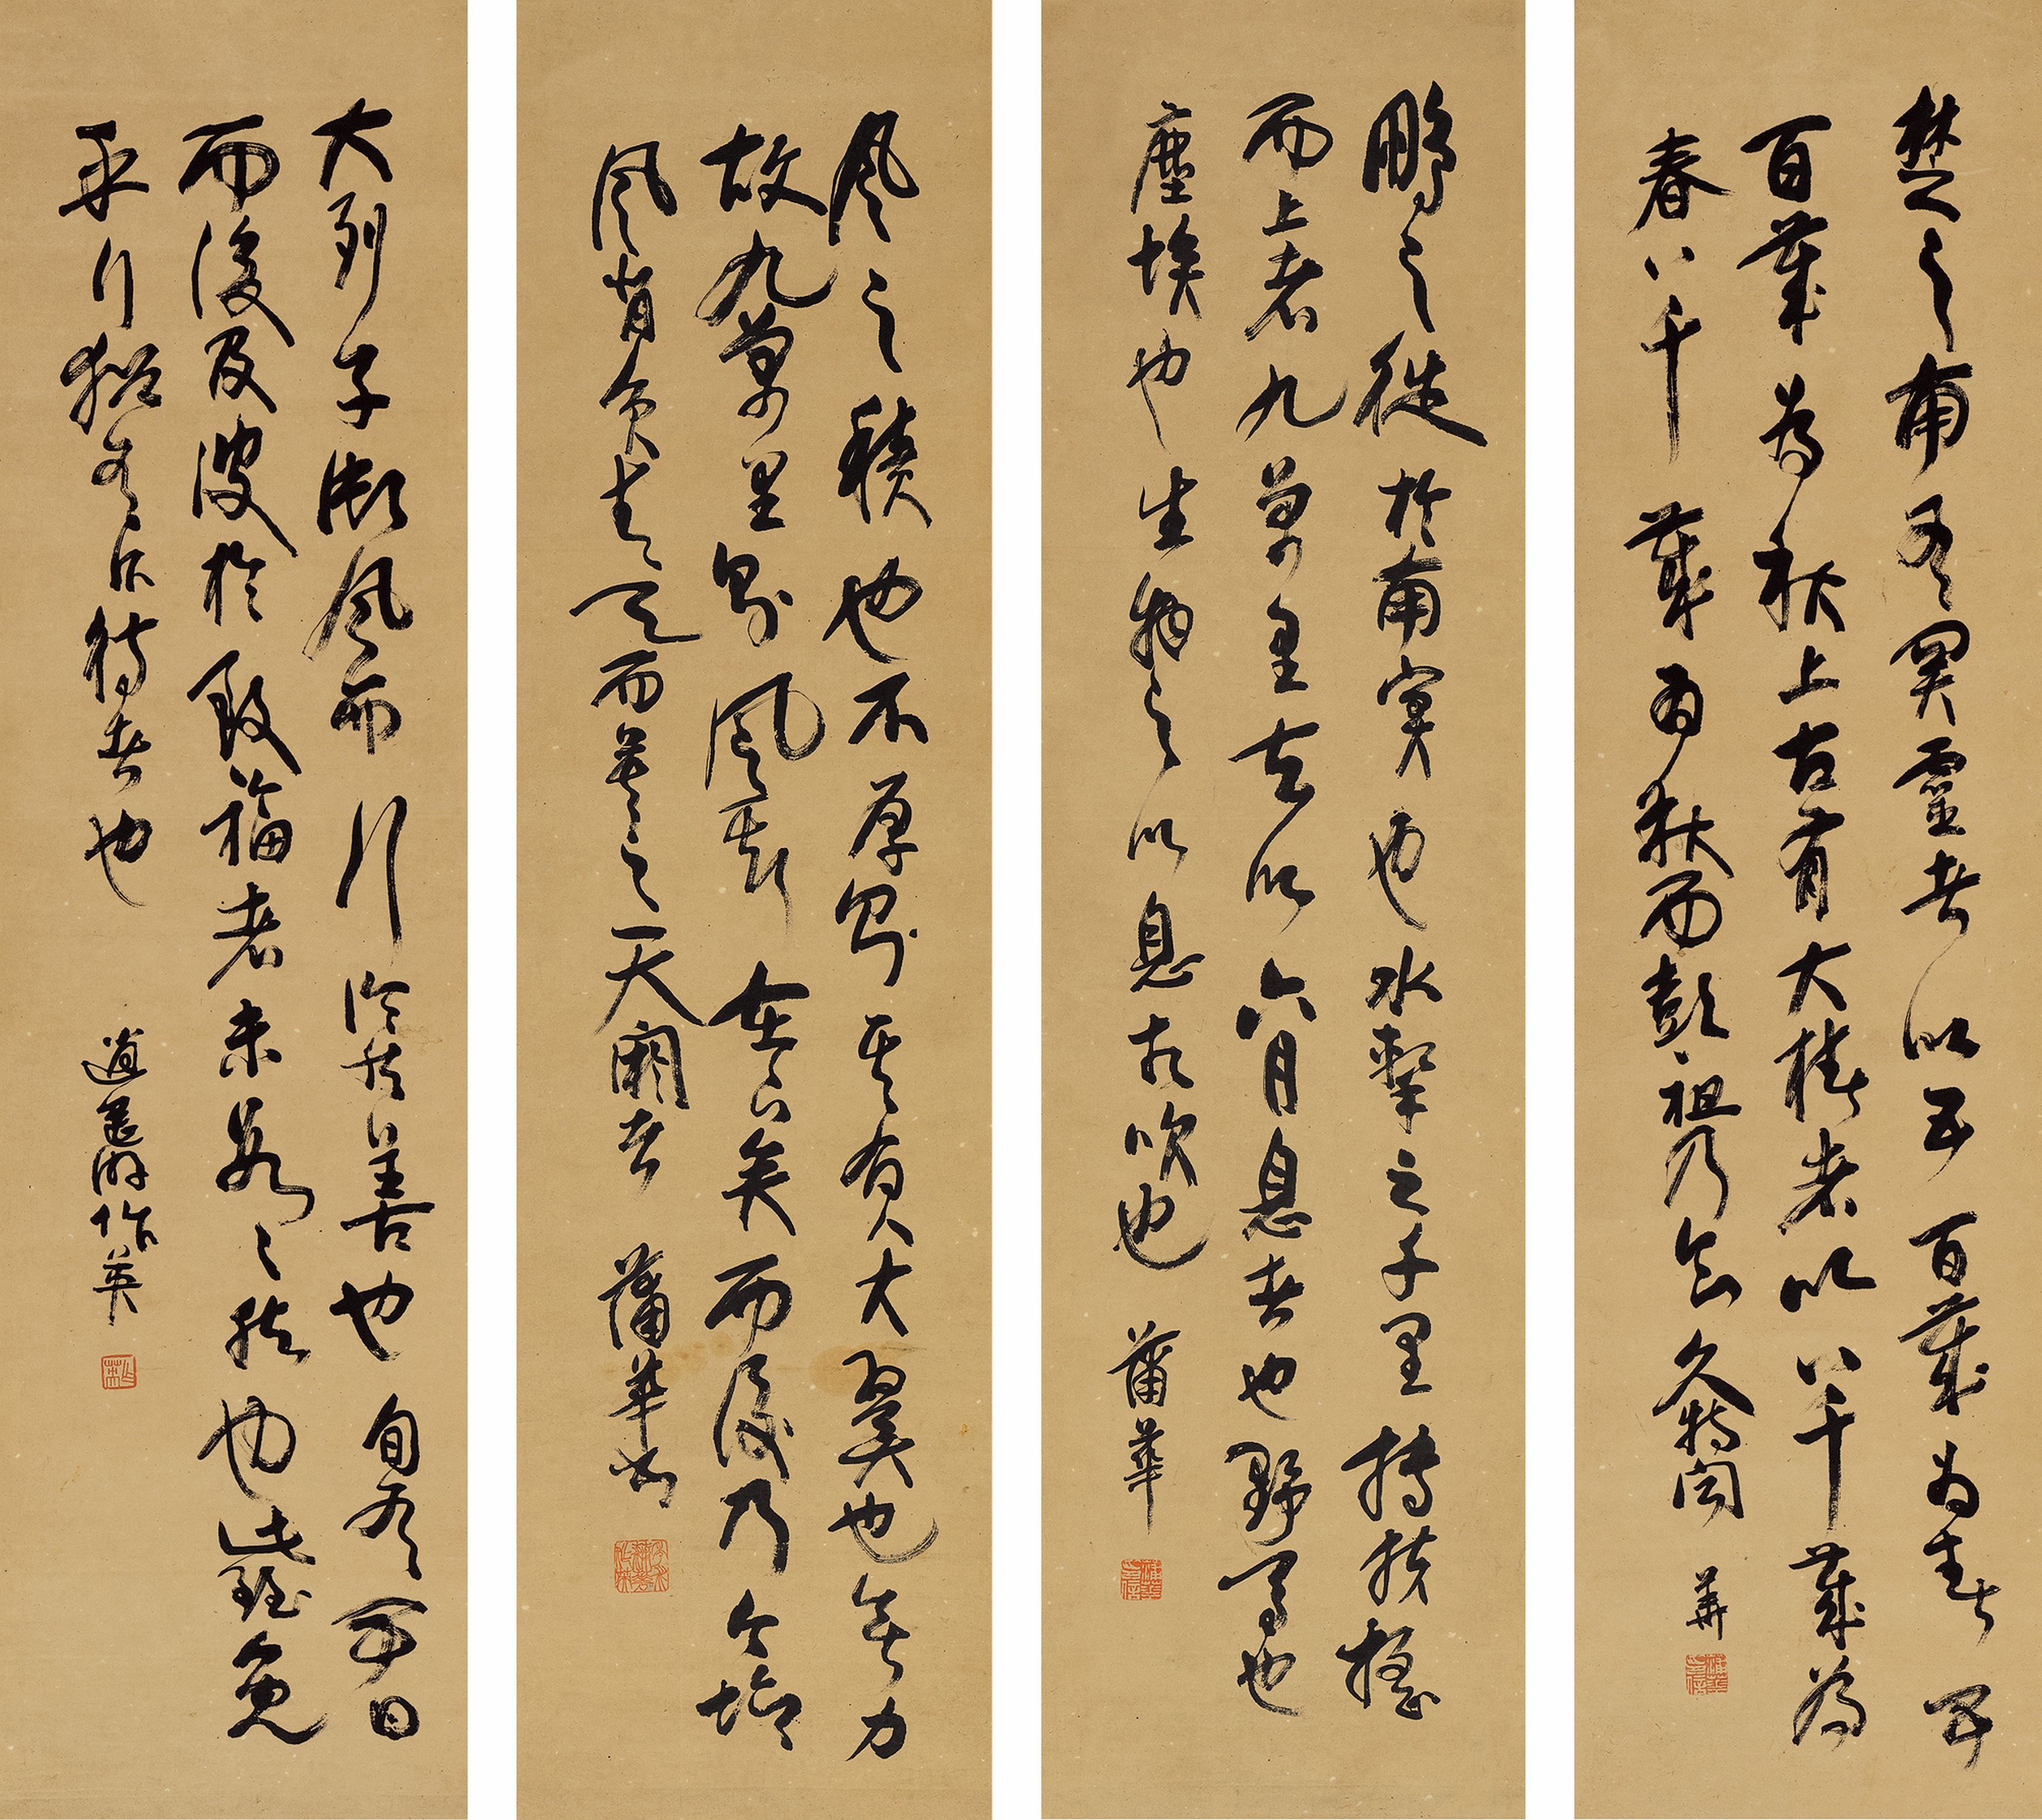 楚之南有冥靈者以五百歲為春五
百歲為秋上古有大椿者以八千歲為
春八千歲為秋而彭祖乃今久特聞 華
鵬之徙於南冥也水擊三千里摶扶搖
而上者九萬里去以六月息者也野馬也
塵埃也生物之以息相吹也 蒲華
風之積也不厚則其負大翼也無力
故九萬里則風斯在下矣而後乃今培
風背負青天而莫之夭閼者 蒲華書
夫列子御風而行泠然善也旬有五日
而後反彼於致福者未數々然也此雖免
乎行猶有所待者也 逍遙游 作英